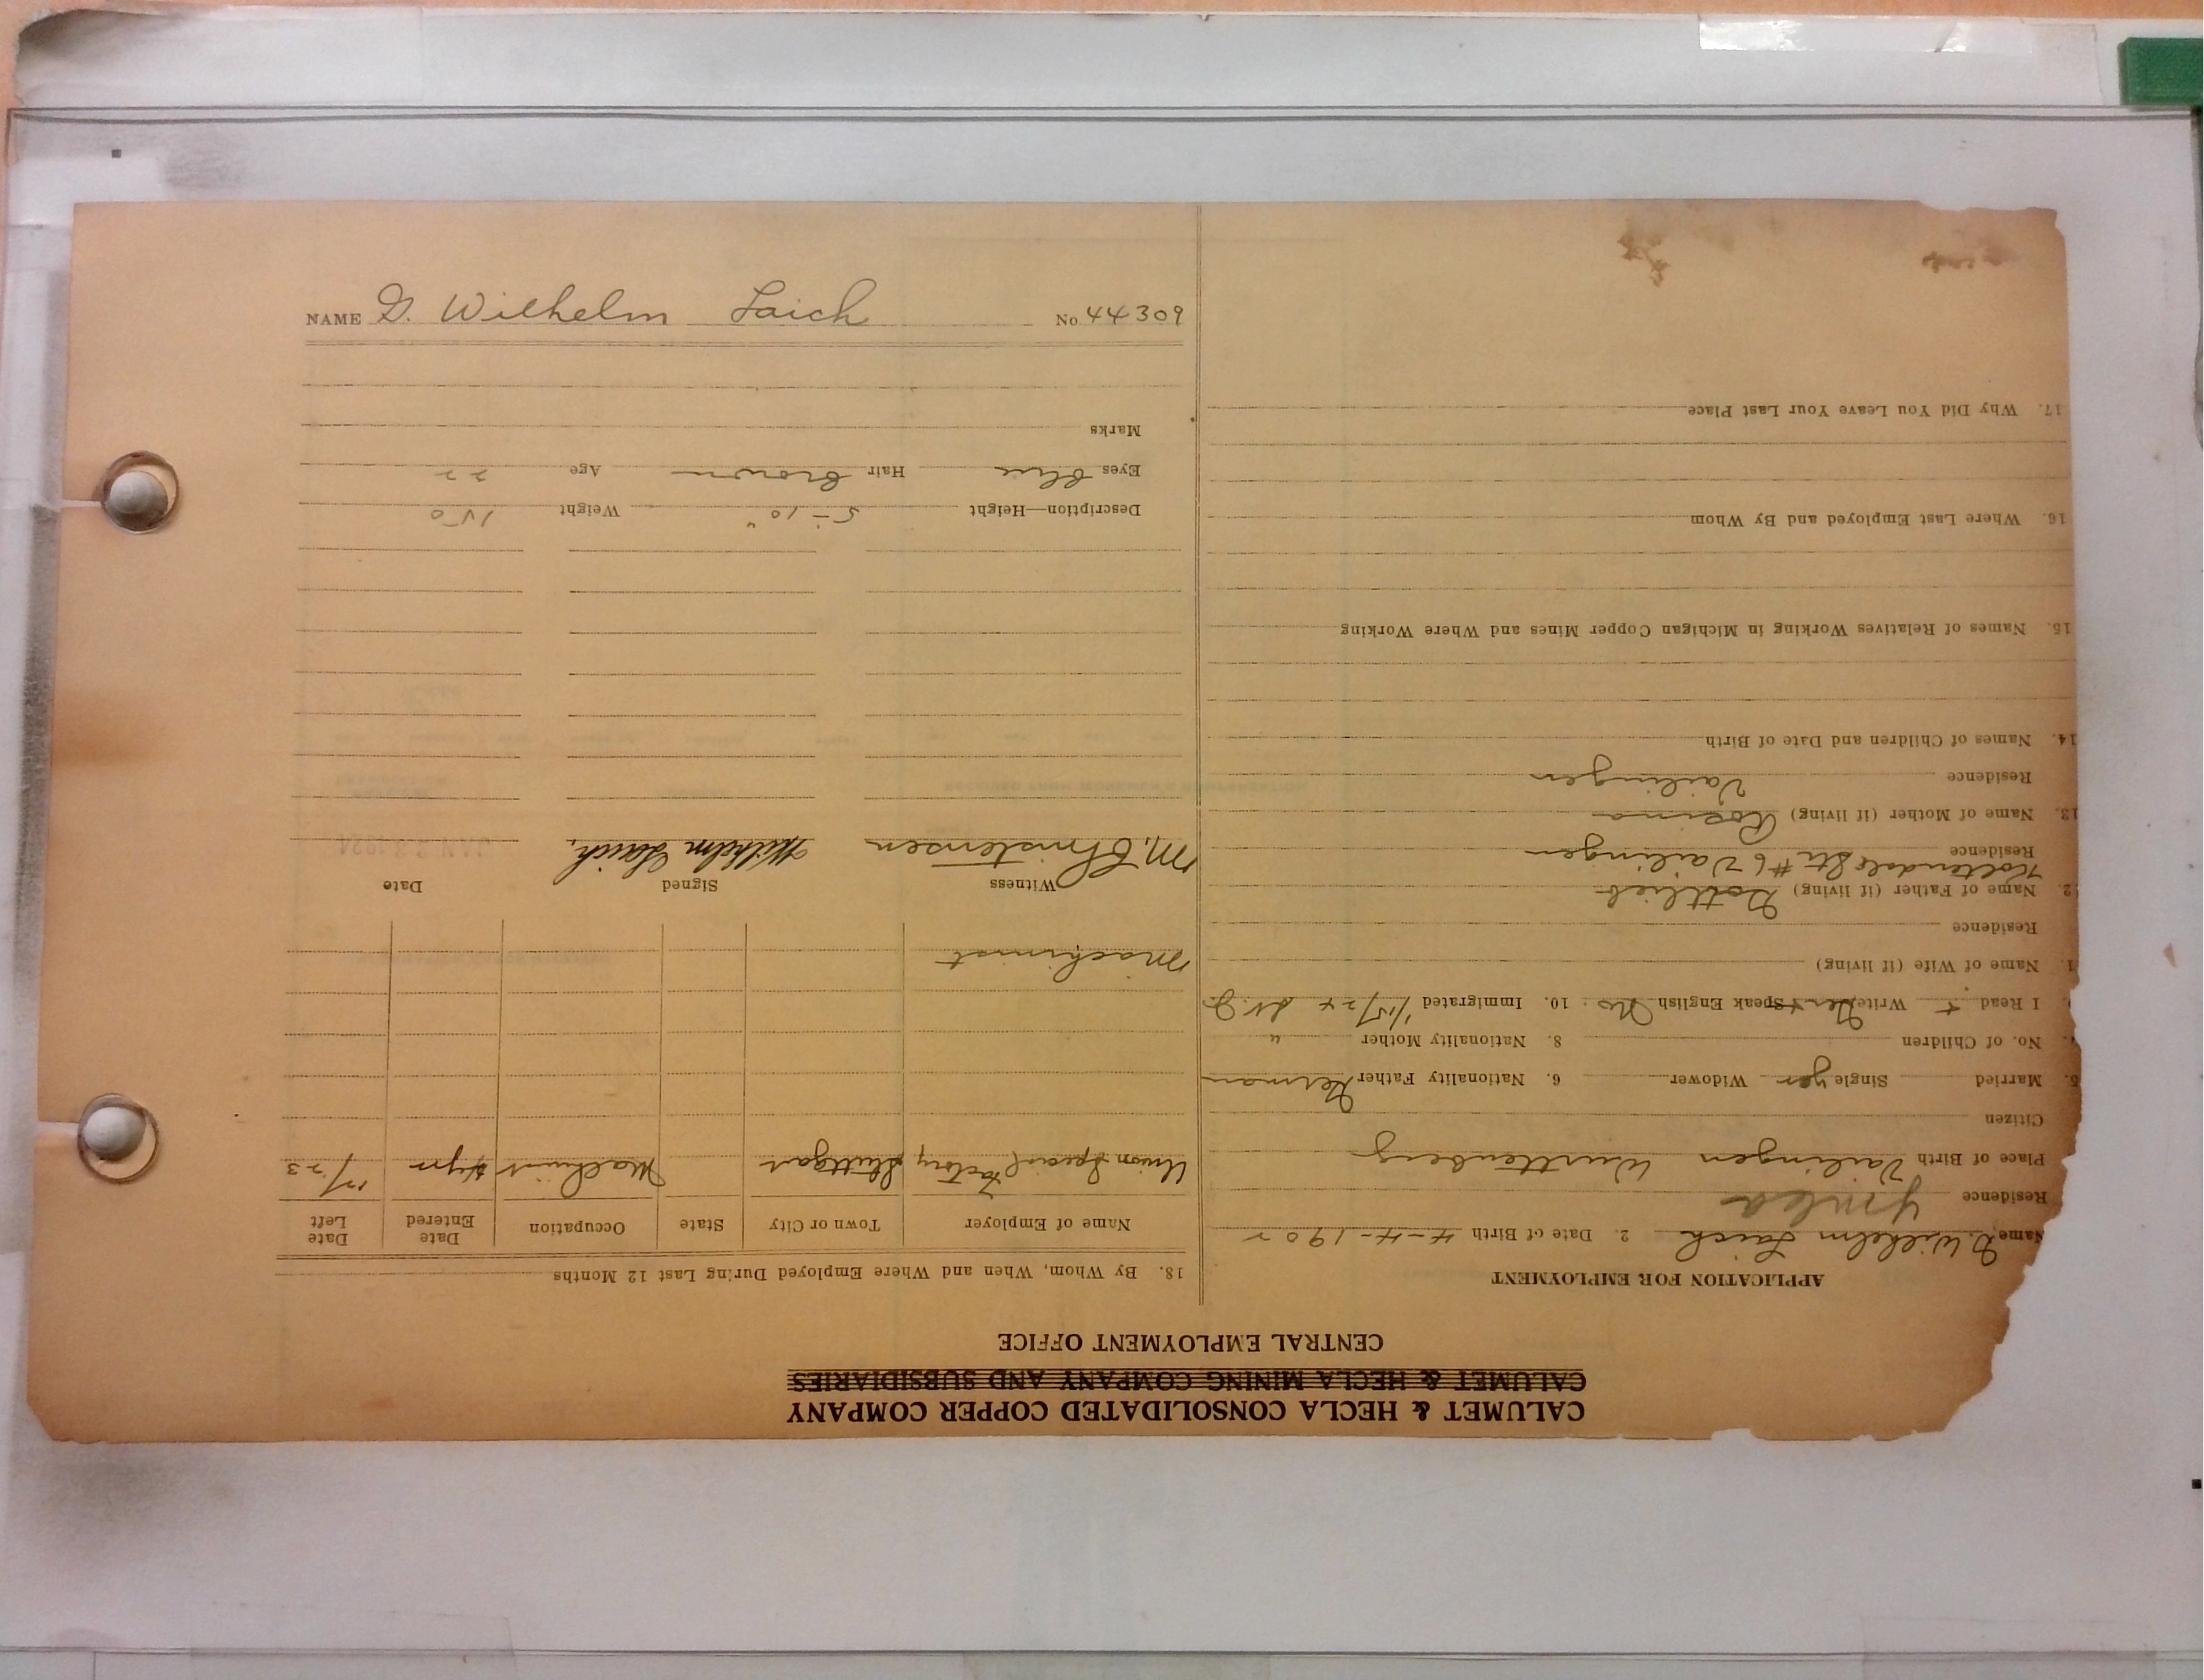 CALUMET & HECLA CONSOLIDATED COPPER COMPANY
CALUMET & HECLA MINING COMPANY AND SUBSIDIARIES
CENTRAL EMPLOYMENT OFFICE
APPLICATION FOR EMPLOYMENT
Name G. Wilhelm Laich 2. Date of Birth 4-4-1902
Residence
Place of Birth Vailingen Wurttenberg
Citizen
5. Married Single yes Widower 6. Nationality Father German
No. of Children 8. Nationality Mother "
I Read + Write Ger + Speak English No 10. Immigrated 1/15/24 N.Y.
1. Name of Wife (if living)
Residence
2. Name of Father (if living) Gottlieb
Residence Str #6 Vailingen
13. Name of Mother (if living) Rosina
Residence Vailingen
14. Names of Children and Date of Birth
15. Names of Relatives Working in Michigan Copper Mines and Where Working
16. Where Last Employed and By Whom
17. Why Did You Leave Your Last Place
18. By Whom, When and Where Employed During Last 12 Months
Name of Employer Town or City State Occupation Date Entered Date Left
Union Special Factory Stuttgart Machinist 4 yrs 12/23
Machinist
Witness Signed Date
M. Christensen Wilhelm Laich, JAN 2 1924
Description—Height 5-10" Weight 150
Eyes blue Hair brown Age 22
Marks
NAME G. Wilhelm Laich No 44309